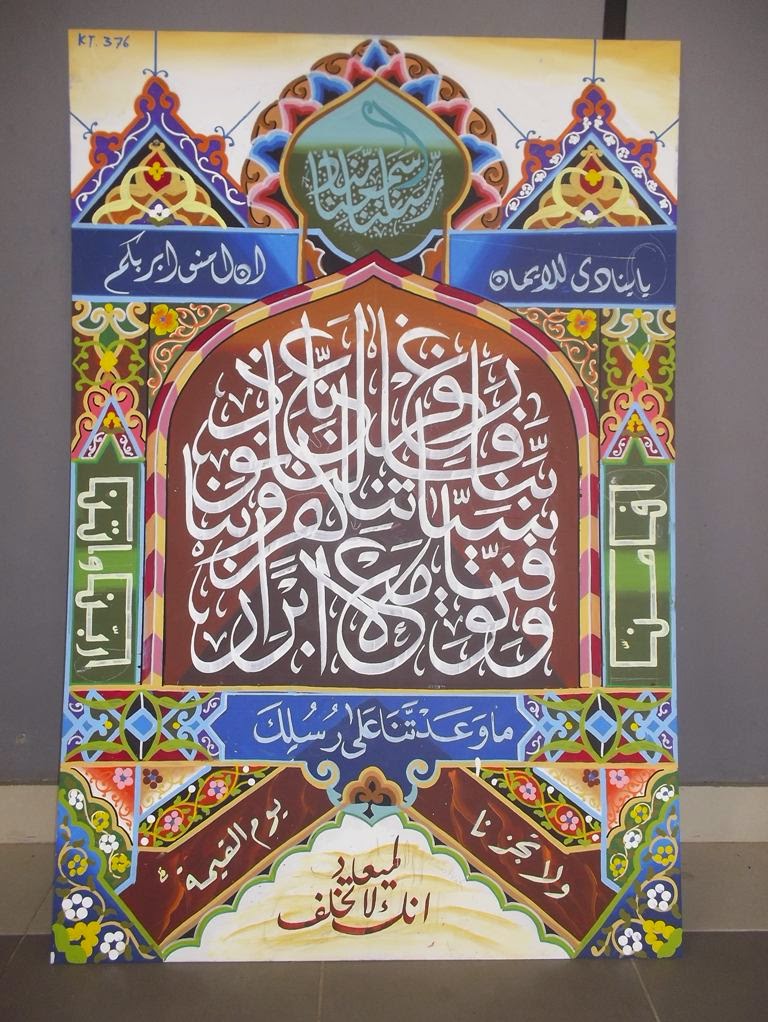 KT. 376
ربنا اننا سمعنا مناد
يا ينادى للايمان
ان امنوا بربكم
فامنا
ربنا فاغفر لنا ذنوبنا وكفر عنا سيئاتنا وتوفنا مع الابرار
ربنا واتنا
ما وَعَدْتَّنَا عَلى رُسُلِكَ
ولا تخزنا
يوم القيمة
انك لا تخلف
الميعاد